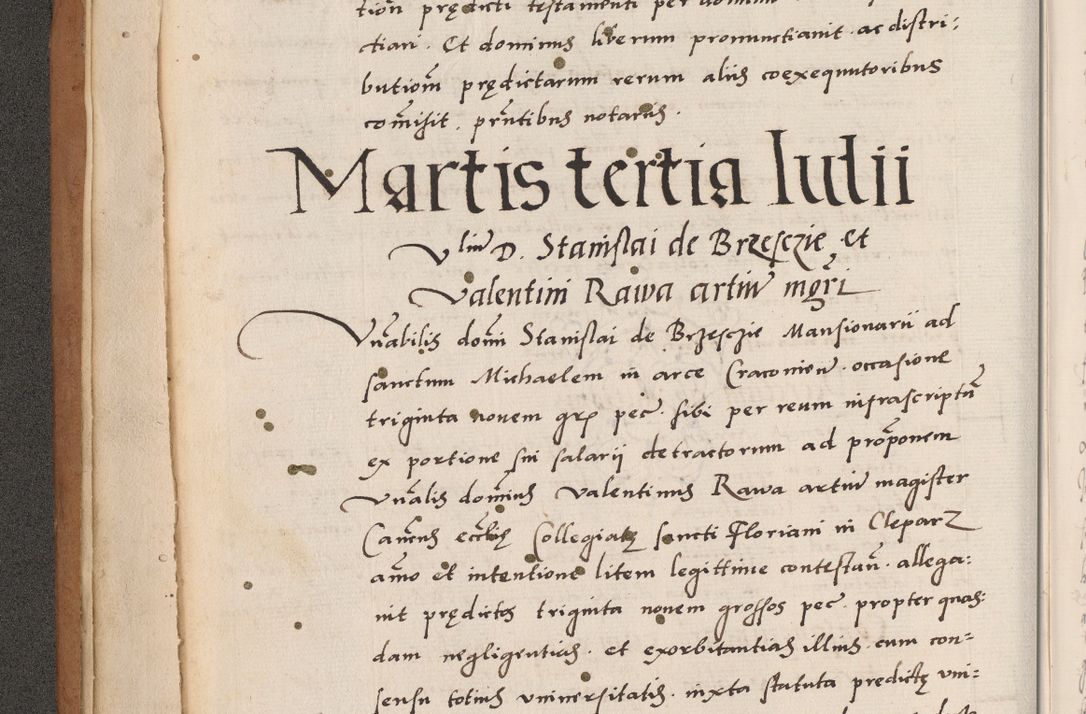 tion prędicti testamenti per domin
ctiari. Et dominus liberum pronunctiavit. ac distri:
butiom̃ prędictarum rerum aliis coexequutoribus
com̃isit. pñtibus notariis.
Martis tertia Iulii
Vliũ D. Stanislai de Brzesczie et
Valentini Rawa artiũ mg̃ri
Vñabilis domĩ Stanislai de Brzesczie Mansionarii ad
sanctum Michaelem in arce Cracovieñ. occasione
triginta novem gr̃ pec̃. sibi per reum infrascriptũ
ex portione sui salarij detractorum ad prop̃onem
Vñalis dominus Valentinus Rawa artiũ magister
Cañcus eccl̃ię Collegiatę sancti Floriani in Cleparz
añmo et intentione litem legittime contestañ. allega:
vit prędictos triginta novem grossos pec̃. propter quas:
dam negligentias. et exorbitantias illius. cum con=
sensu totius universitatis. iuxta statuta predictę uni=